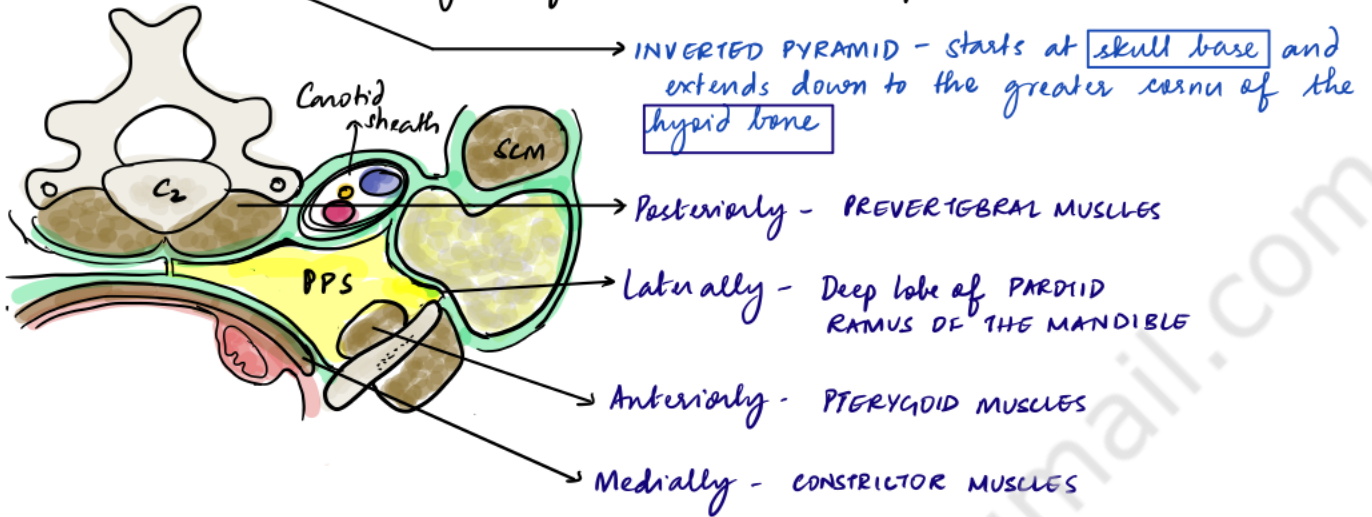 INVERTED PYRAMID - starts at skull base and
extends down to the greater cornu of the
hyoid bone
Carotid
sheath
SCM
C2
Posteriorly - PREVERTEBRAL MUSCLES
PPS
Laterally - Deep lobe of PAROTID
RAMUS OF THE MANDIBLE
Anteriorly - PTERYGOID MUSCLES
Medially - CONSTRICTOR MUSCLES
mail.com